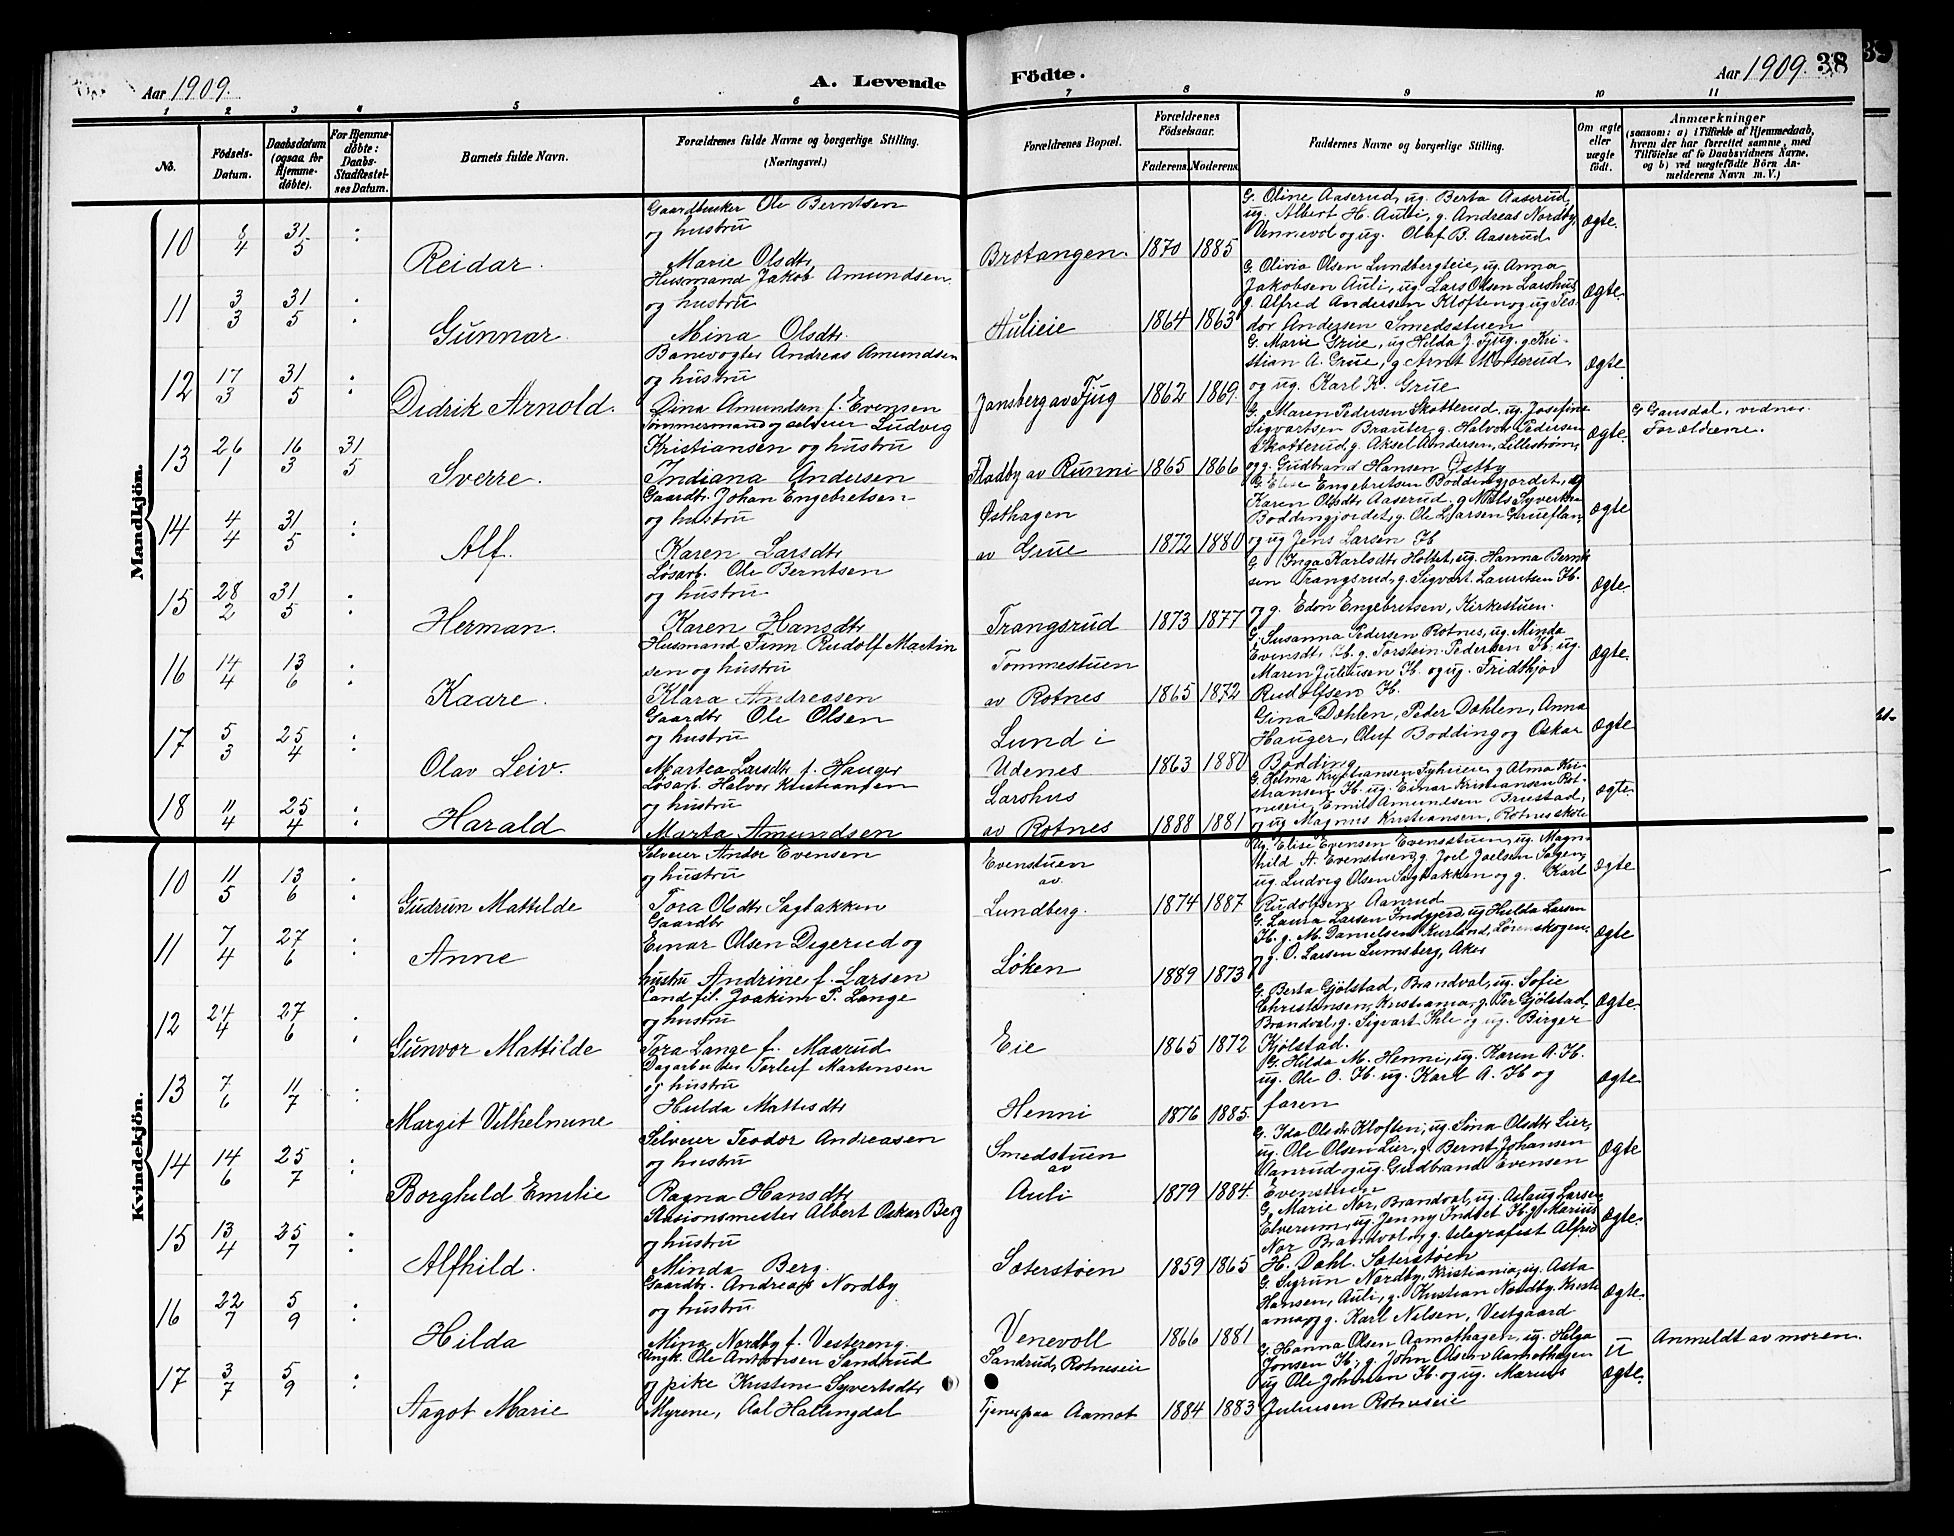 Aar 1909.
A. Levende
Födte.
Aar 1909. 38
39
1 2 3 4 5 6 7 8 9 10 11
No.
Födsels-
Datum.
Daabsdatum
(ogsaa for
Hjemme-
döbte).
For Hjemme-
döbte:
Daabs-
Stadfæstel-
ses Datum.
Barnets fulde Navn.
Forældrenes fulde Navne og borgerlige Stilling.
(Næringsvei.)
Forældrenes Bopæl.
Forældrenes
Födselsaar.
Faderens. Moderens.
Faddernes Navne og borgerlige Stilling.
Om ægte
eller
uægte
födt.
Anmærkninger
(saasom: a) i Tilfælde af Hjemmedaab,
hvem der har forrettet samme, med
Tilföielse af to Daabsvidners Navne,
og b) ved uægtefödte Börn An-
melderens Navn m. V.)
Mandkjön.
10 8/4 31/5 : Reidar.
Gaardbruker Ole Berntsen
og hustru
Marie Olsdtr
Brotangen. 1870 1885
G. Oline Aaserud, ug. Berta Aaserud,
ug. Albert H. Auli, g. Andreas Nordby,
Vennevol og ug. Olaf B. Aaserud
Ægte.
11 3/3 31/5 : Gunnar.
Husmand Jakob Amundsen
og hustru
Mina Olsdtr.
Aulieie 1864 1863
G. Olivia Olsen Lundbergeie, ug. Anna
Jakobsen Auli, ug. Lars Olsen Larshus,
g. Alfred Andersen Kloften og ug Teo-
dor Andersen Smedsstuen
Ægte.
12 17/3 31/5 : Didrik Arnold.
Banevogter Andreas Amundsen
og hustru
Dina Amundsen f. Evensen
Jansberg av Fjug 1862 1869.
G. Marie Grue, ug Hilda J. Fjug, g. Kri-
stian A. Grue, g Arnt Morterud
og ug. Karl K. Grue
Ægte.
13 26/1 16/3 31/5 Sverre.
Tømmermand og selveier Ludvig
Kristiansen og hustru
Indiana Andersen
Fladby av Runni 1865 1866
G. Maren Pedersen Skotterud, ug. Josefine
Sigvartsen Brauter, g. Halvor Pedersen
Skotterud, g. Aksel Andersen, Lillestrøm,
og g. Gudbrand Hansen Østby
Ægte.
G Gansdal, vidner
Forældrene.
14 4/4 31/5 : Alf.
Gaardbr. Johan Engebretsen
og hustru
Karen Larsdtr
Østhagen
av Grue 1872 1880
G. Elise Engebretsen Boddingjordet, ug
Karen Olsdtr Aaserud. g Nils Syvertsen
Boddingjordet, g. Ole Larsen Grueflan,
og ug Jens Larsen H.
Ægte
15 28/2 31/5 : Herman.
Løsarb. Ole Berntsen
og hustru
Karen Hansdtr
Trangsrud 1873 1877
G. Inga Karlsdtr Holtet, ug. Hanna Bernt-
sen Trangsrud, g. Sigvart Lauritsen H.
og g. Edon Engebretsen, Kirkestuen.
Ægte.
16 14/4 13/6 : Kaare.
Husmand Finn Rudolf Martin
sen og hustru
Klara Andreasen
Tommestuen
av Rotnes 1865 1872
G. Susanna Pedersen Rotnes, ug. Minda
Evensdtr. H. g. Torstein Pedersen H. ug.
Maren Juliusen H. og ug. Fridthjov
Rudolfsen H.
Ægte.
17 5/3 25/4 : Olav Leiv.
Gaardbr Ole Olsen
og hustru
Martea Larsdtr f. Hauger
Lund i
Udenes 1863 1880
Gina Dæhlen, Peder Dæhlen, Anna
Hauger, Oluf Bodding og Oskar
Bodding
Ægte
18 11/4 25/4 : Harald
Løsarb. Halvor Kristiansen
og hustru
Marta Amundsen
Larshus
av Rotnes 1888 1881
G. Helma Kristiansen g Alma Kri-
stiansen H. ug. Einar Kristiansen Rot-
neseie, Emil Amundsen Brustad,
og ug Magnus Kristiansen, Rotnesskole
ægte.
Kvindekjön.
10 11/5 13/6 : Gudrun Mathilde
Selveier Andor Evensen
og hustru
Tora Olsdtr Sagbakken
Evenstuen
av
Lundberg. 1874 1887
Ug. Elise Evensen Evensstuen, ug. Magn-
hild A. Evenstuen, g. Joel Joelsen Sagen,
ug. Ludvig Olsen Sagbakken og g. Karl
Rudolfsen Aanrud
ægte
11 7/4 27/6 : Anne
Gaardbr
Einar Olsen Digerud og
hustru Andrine f. Larsen
Løken 1889 1873
G. Laura Larsen Indgjerd, ug Hulda Larsen
H. g. M. Danielsen Kurland, Lørenskogen,
og g. O. Larsen Lumsberg, Aker
ægte
12 24/4 27/6 : Gunvor Mathilde
Cand fil. Joakim P. Lange
og hustru
Tora Lange f. Maarud
Eie 1865 1872
G. Berta Gjølstad, Brandval, ug. Sofie
Christensen, Kristiania, g. Per Gjølstad,
Brandval, g. Sigvart Ihle og ug. Birger
Kjølstad.
Ægte.
13 7/6 11/7 : Margit Vilhelmine
Dagarbeider Torleif Martensen
og hustru
Hulda Mattisdtr
Henni 1876 1885.
G. Hilda M. Henni, ug. Karen A. H.
ug. Ole O. H. ug. Karl A. H og
faren
Ægte.
14 14/6 25/7 : Borghild Emilie
Selveier Teodor Andreasen
og hustru
Ragna Hansdtr
Smedstuen
av
Auli 1879 1884.
G. Ida Olsdtr Kloften, ug. Sina Olsdtr Lier,
ug. Ole Olsen Lier, g Bernt Johansen
Aanrud og ug. Gudbrand Evensen
Evenstuen
Ægte
15 13/4 25/7 : Alfhild.
Stasionsmester Albert Oskar Berg
og hustru
Minda Berg.
Sæterstøen 1859 1865
G. Marie Nor, Brandval, ug. Aslaug Larsen
Elverum, ug. Jenny Indset H. g Marius
Nor Brandval, g. telegrafist Alfred
H. Dahl. Sæterstøen
Ægte.
16 22/7 5/9 : Hilda
Gaardbr. Andreas Nordby
og hustru
Mina Nordby f. Vestreng.
Venevoll 1866 1881
G. Sigrun Nordby, Kristiania, ug. Asta
Hansen, Auli, g. Kristian Nordby. Kristi-
ania og g. Karl Nilsen, Vestgaard
Ægte.
17 3/7 5/9 : Aagot Marie
Ungk. Ole Antonsen Sandrud
og pike Kristine Syvertsdtr
Myrene, Aal Hallingdal
Sandrud, Rotneseie
Tjener paa Aamot 1884 1883
G. Hanna Olsen Aamothagen, ug. Helga
Jonsen H., g. John Olsen Aamothagen
ug Ole Johnsen H. og ug. Marius
Juliusen Rotneseie
u
ægte.
Anmeldt av moren.